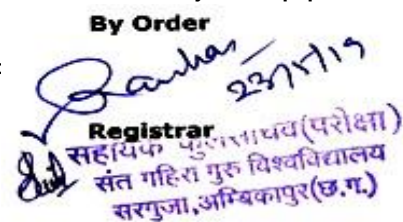 By Order
23/5/19
Registrar
सहायक कुलसचिव(परीक्षा)
संत गहिरा गुरु विश्वविद्यालय
सरगुजा,अम्बिकापुर(छ.ग.)